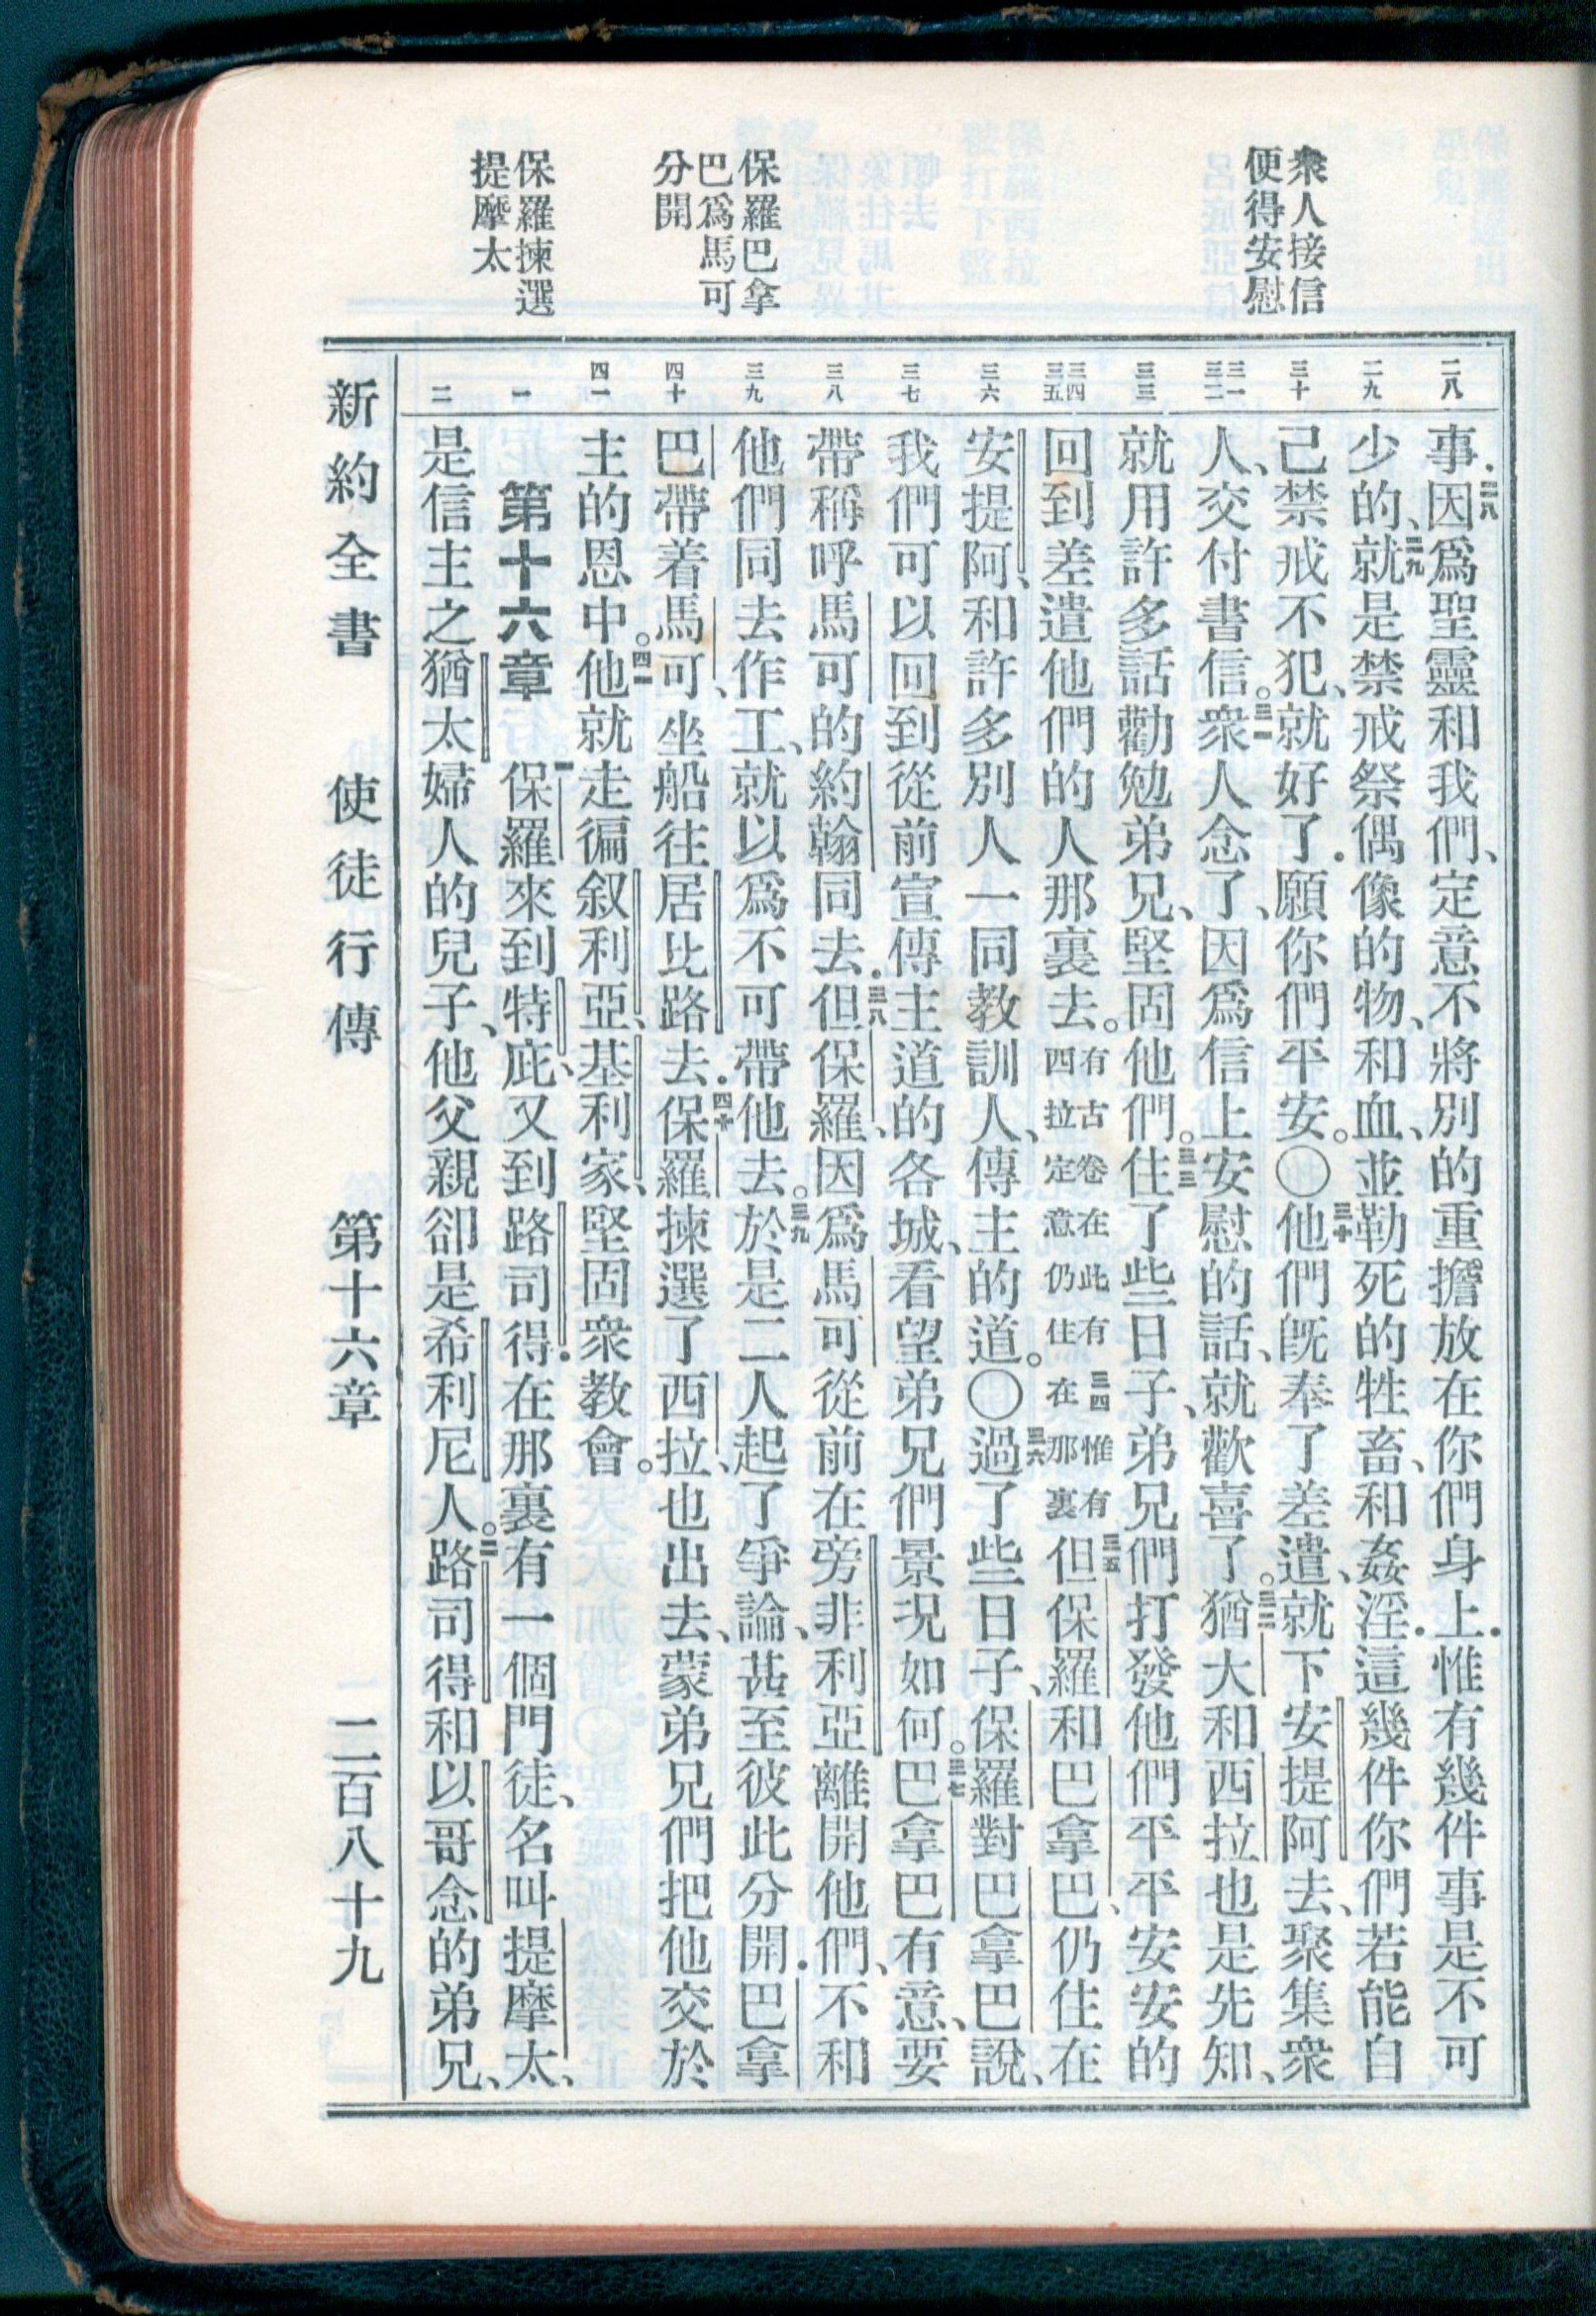 衆人接信
便得安慰
保羅巴拿
巴爲馬可
分開
保羅揀選
提摩太
二八
二九
三十
三一
三二
三三
三四
三五
三六
三七
三八
三九
四十
四一
一
二
事.二八因爲聖靈和我們、定意不將別的重擔放在你們身上.惟有幾件事是不可
少的、二九就是禁戒祭偶像的物、和血、並勒死的牲畜、和姦淫.這幾件你們若能自
己禁戒不犯、就好了.願你們平安。〇三十他們旣奉了差遣、就下安提阿去、聚集衆
人、交付書信。三一衆人念了、因爲信上安慰的話、就歡喜了。三二猶大和西拉也是先知、
就用許多話勸勉弟兄、堅固他們。三三住了些日子、弟兄們打發他們平平安安的
回到差遣他們的人那裏去。有古卷在此有三四惟有四拉定意仍住在那裏三五但保羅和巴拿巴、仍住在
安提阿、和許多別人一同教訓人、傳主的道。〇三六過了些日子、保羅對巴拿巴說、
我們可以回到從前宣傳主道的各城、看望弟兄們景況如何。三七巴拿巴有意、要
帶稱呼馬可的約翰同去.三八但保羅、因爲馬可從前在旁非利亞離開他們、不和
他們同去作工、就以爲不可帶他去。三九於是二人起了爭論、甚至彼此分開.巴拿
巴帶着馬可、坐船往居比路去.四十保羅揀選了西拉、也出去、蒙弟兄們把他交於
主的恩中。四一他就走徧叙利亞、基利家、堅固衆教會。
第十六章 一保羅來到特庇、又到路司得.在那裏有一個門徒、名叫提摩太、
是信主之猶太婦人的兒子、他父親卻是希利尼人。二路司得和以哥念的弟兄、
新約全書 使徒行傳 第十六章 二百八十九